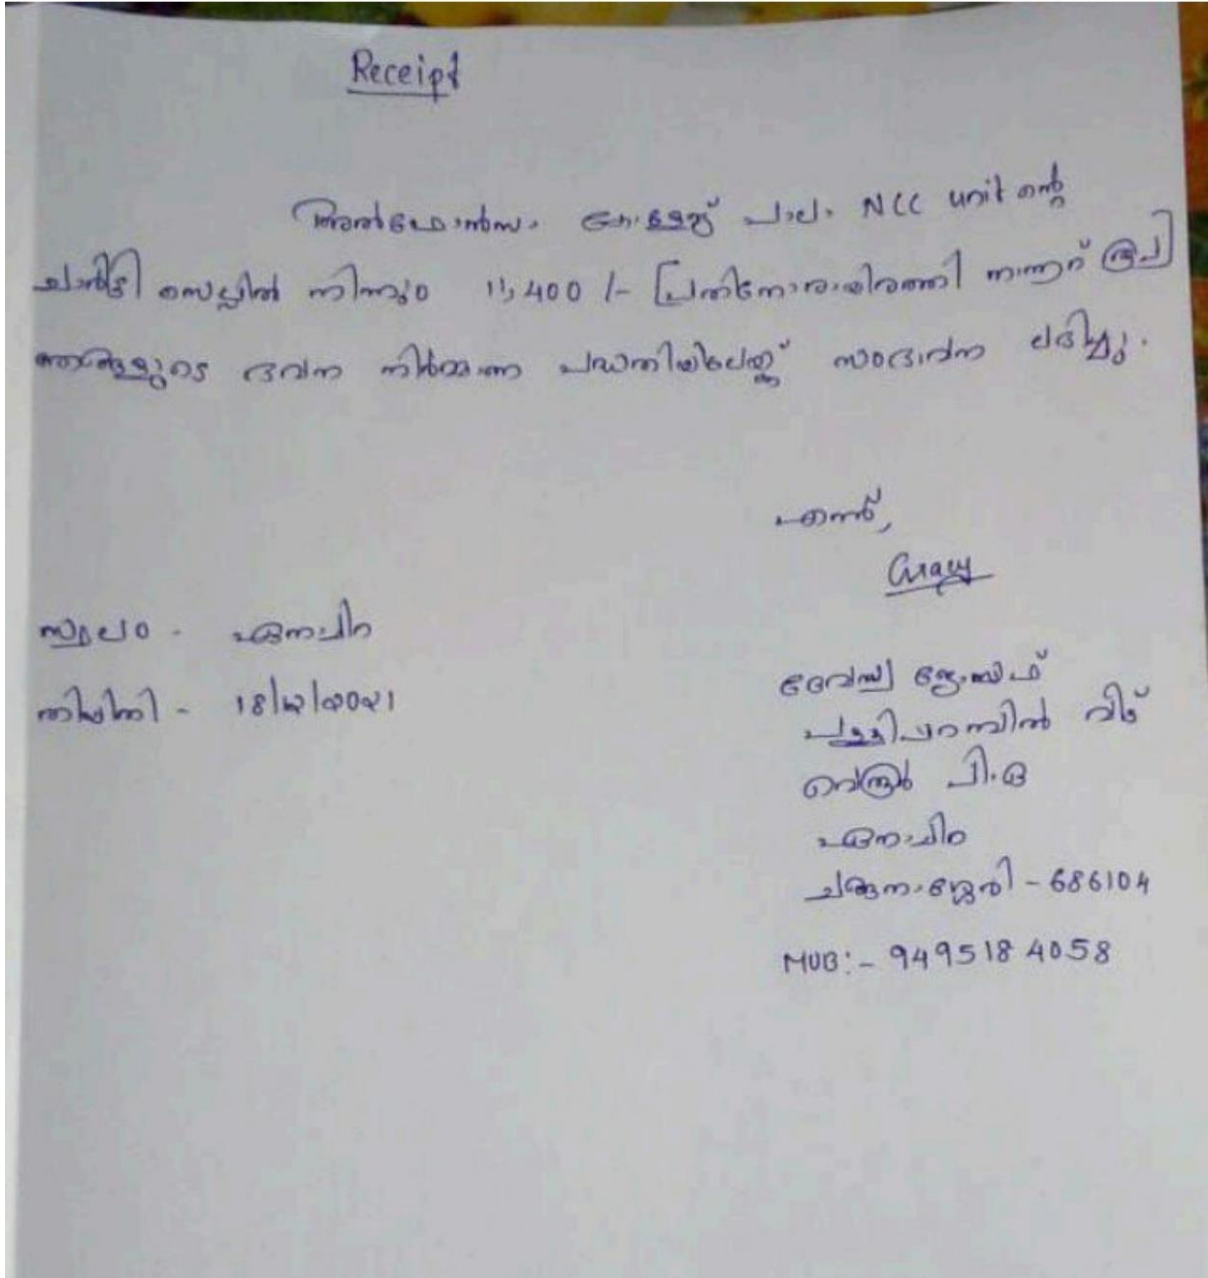 Receipt
അൽഫോൻസാ കോളേജ് പാലാ NCC unit ന്റെ
ചാരിറ്റി സെല്ലിൽ നിന്നും 11,400 /- [പതിനോരായിരത്തി നാന്നൂറ് രൂപ]
ഞങ്ങളുടെ ഭവന നിർമ്മാണ പദ്ധതിയിലേയ്ക്ക് സംഭാവന ലഭിച്ചു.
എന്ന്,
സ്ഥലം - ഏനാചിറ
തിയ്യതി - 18/12/2021
ദേവസ്യ ജോസഫ്
പള്ളിപറമ്പിൽ വീട്
പി.ഒ
ഏനാചിറ
ചങ്ങനാശ്ശേരി - 686104
MOB:- 9495184058